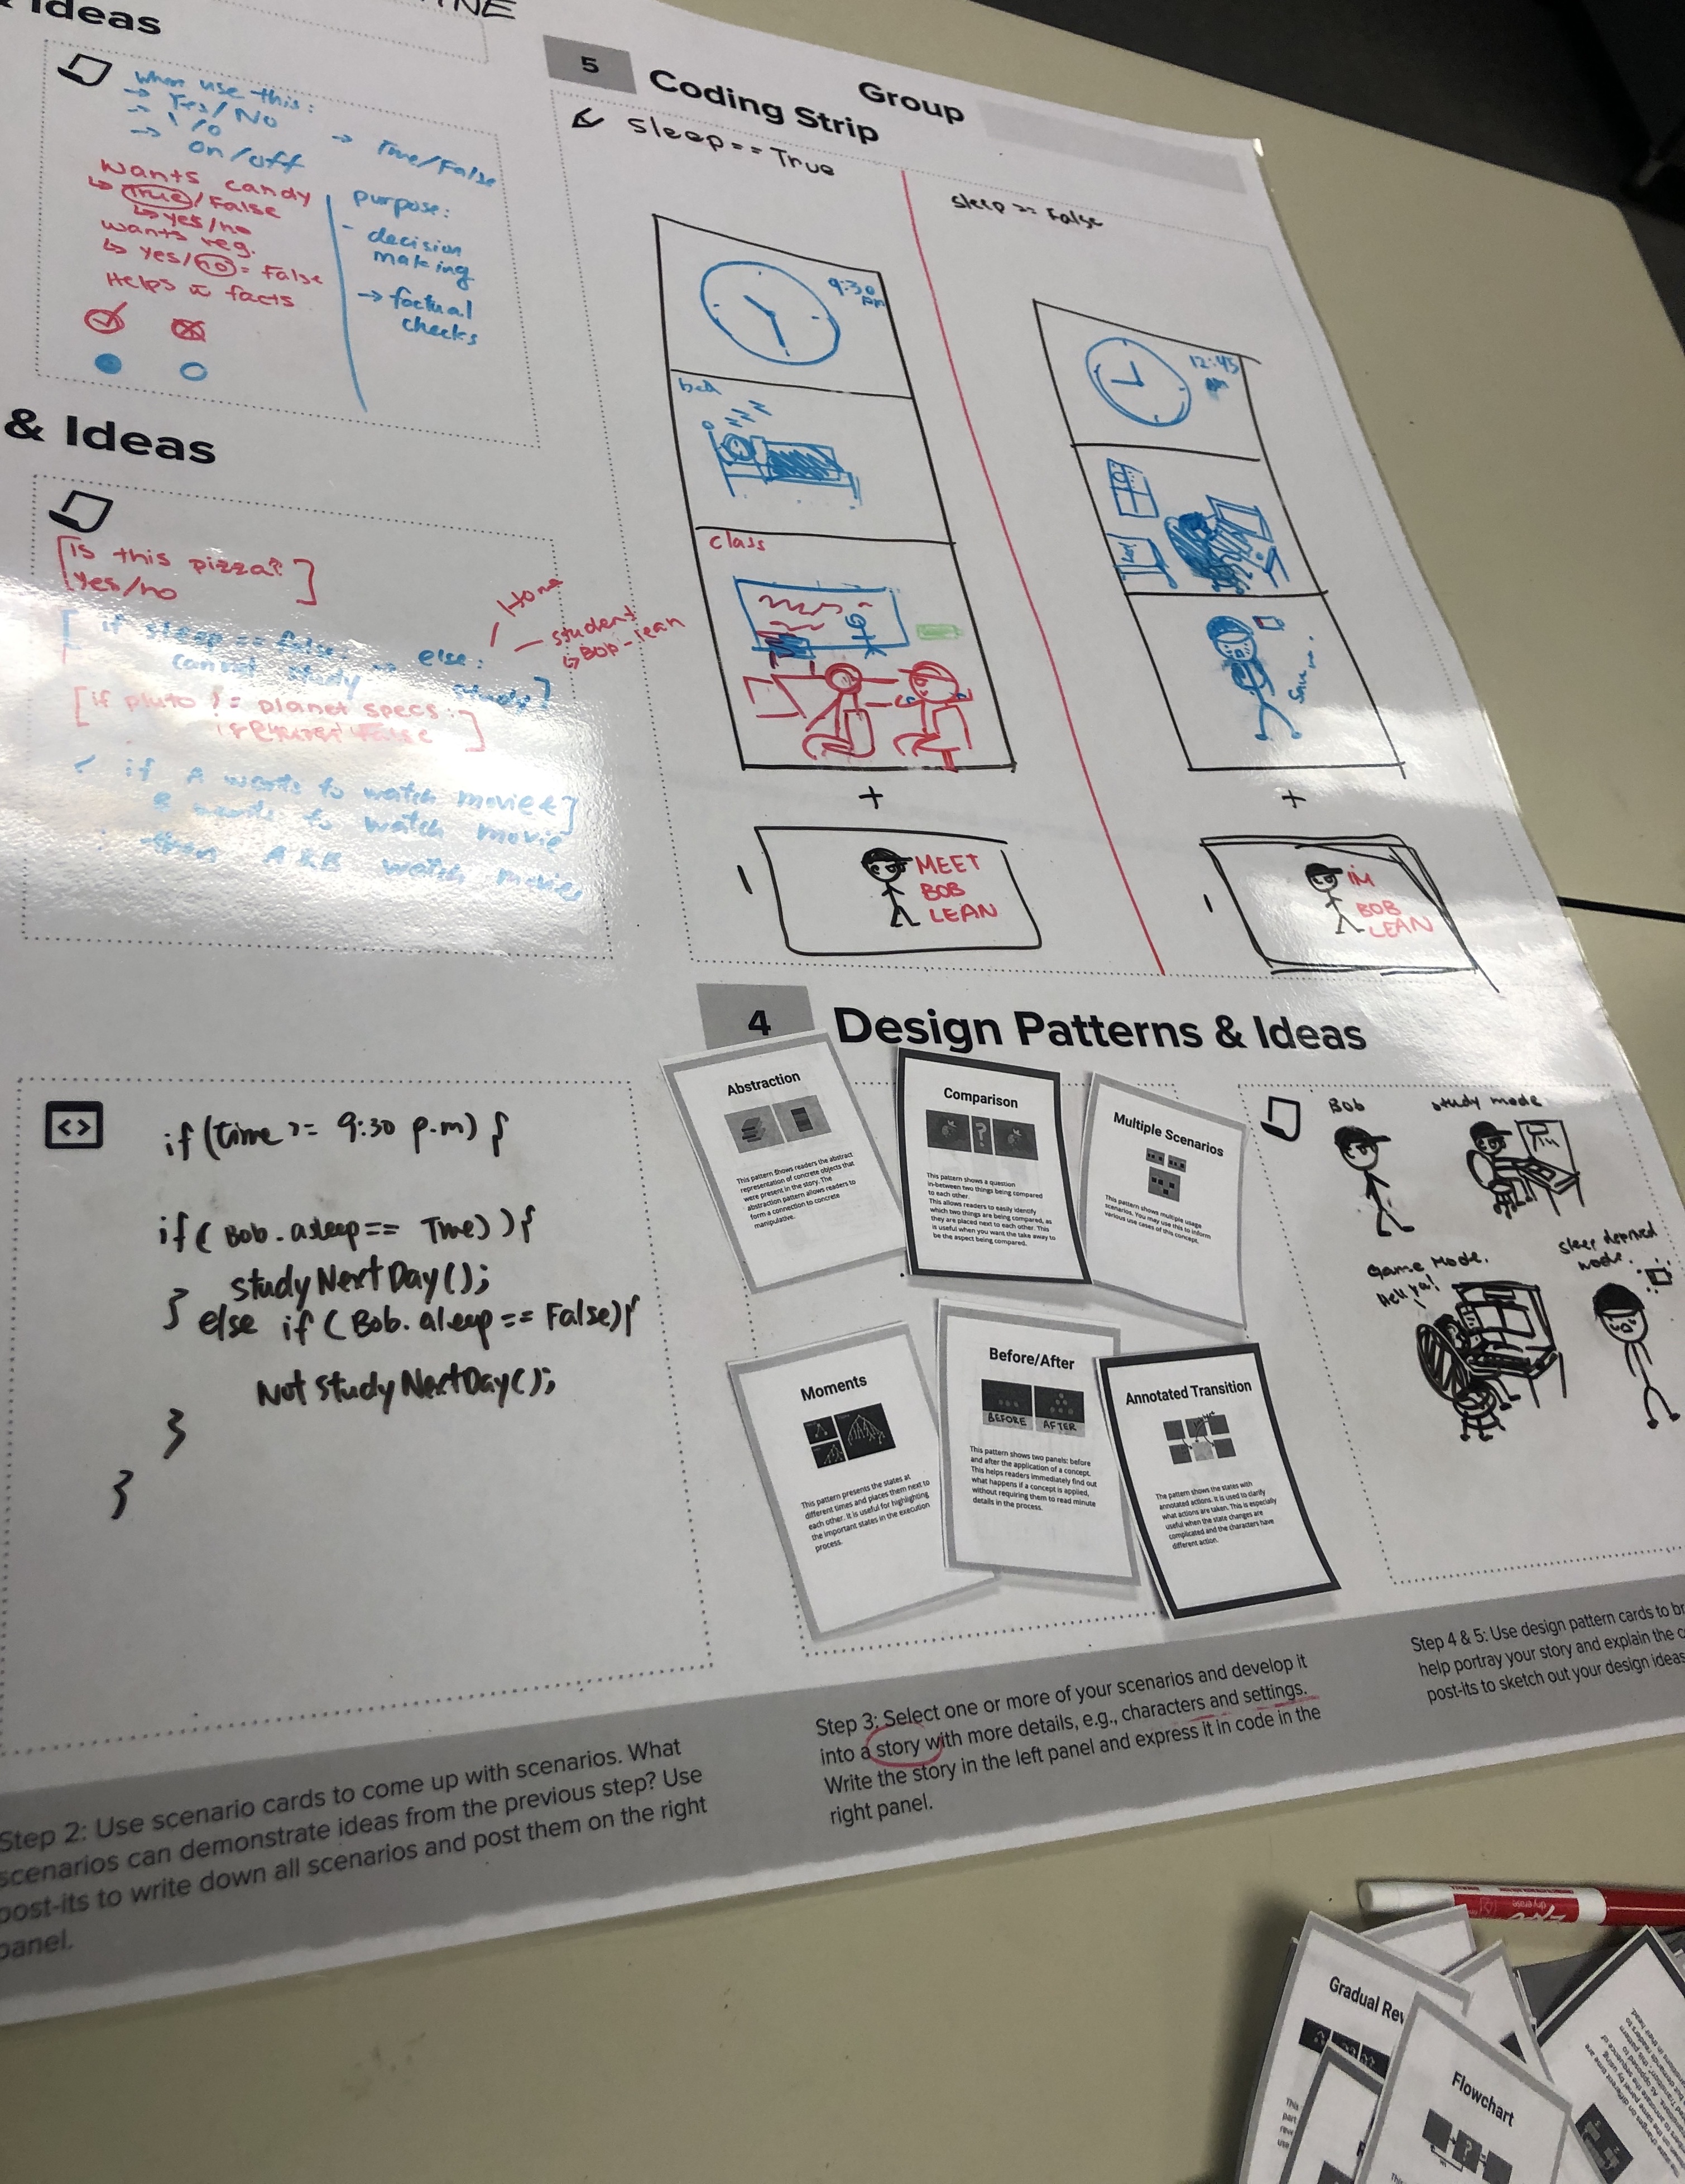 & Ideas
When use this:
→ Yes/No
→ 1/0
→ On/off
→ True/False
Wants candy
↳ True/False
↳ yes/no
Wants reg.
↳ yes/no = False
Helps w facts
purpose:
- decision
making
→ factual
checks
& Ideas
[Is this pizza?]
Yes/no
if sleep == false
cannot study
else:
student
↳ Bob-lean
[if pluto != planet specs:]
if A wants to watch movie &
B wants to watch movie
then A&B watch movie
5
Coding Strip
Group
Sleep == True
Sleep == False
9:30
pm
bed
zzz
class
+
MEET
BOB
LEAN
12:45
+
I'M
BOB
LEAN
<>
if (time >= 9:30 p.m) {
if ( Bob.asleep == True)) {
studyNextDay();
} else if (Bob.aleep == False){
Not studyNextDay();
}
}
4
Design Patterns & Ideas
Abstraction
This pattern shows readers the abstract
representation of concrete objects that
were present in the story. The
abstraction pattern allows readers to
form a connection to concrete
manipulative.
Comparison
?
This pattern shows a question
in-between two things being compared
to each other.
This allows readers to easily identify
which two things are being compared, as
they are placed next to each other. This
is useful when you want the take away to
be the aspect being compared.
Multiple Scenarios
This pattern shows multiple usage
scenarios. You may use this to inform
various use cases of this concept.
Moments
This pattern presents the states at
different times and places them next to
each other. It is useful for highlighting
the important states in the execution
process.
Before/After
BEFORE
AFTER
This pattern shows two panels: before
and after the application of a concept.
This helps readers immediately find out
what happens if a concept is applied,
without requiring them to read minute
details in the process.
Annotated Transition
The pattern shows the states with
annotated actions. It is used to clarify
what actions are taken. This is especially
useful when the state changes are
complicated and the characters have
different action.
Bob
study mode
Game Mode.
Hell ya!
sleep deprived
mode.
Step 2: Use scenario cards to come up with scenarios. What
scenarios can demonstrate ideas from the previous step? Use
post-its to write down all scenarios and post them on the right
panel.
Step 3: Select one or more of your scenarios and develop it
into a story with more details, e.g., characters and settings.
Write the story in the left panel and express it in code in the
right panel.
Step 4 & 5: Use design pattern cards to br
help portray your story and explain the c
post-its to sketch out your design ideas
dry erase
Gradual Rev
Flowchart